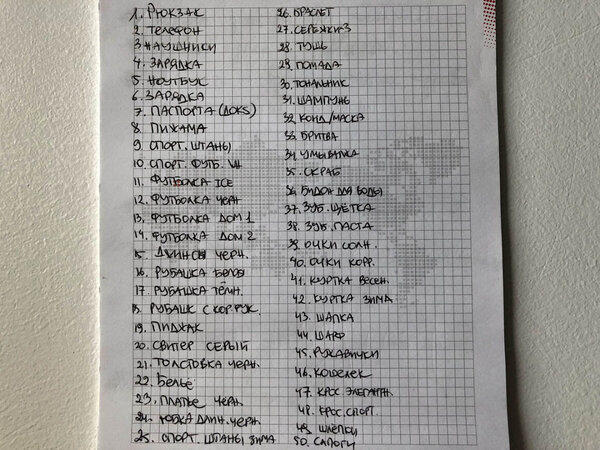 1. Рюкзак
2. Телефон
3 Наушники
4. Зарядка
5. Ноутбук
6. Зарядка
7. Паспорта (докs)
8. Пижама
9 Спорт. штаны
10. Спорт. футб.
11. Футболка ICE
12. Футболка черн
13. Футболка дом 1
14. Футболка дом 2
15. Джинсы черн.
16. Рубашка белая
17. Рубашка тёмн.
18. Рубашк с кор. рук.
19. Пиджак
20. Свитер серый
21. Толстовка черн.
22. Бельё
23. Платье черн.
24. Юбка длин. черн.
25. Спорт. штаны зима
26. Браслет
27. Сережки-3
28. Тушь
29. Помада
30. Тональник
31. Шампунь
32. Конд/маска
33. Бритва
34. Умывалка
35. Скраб
36. Бидон для воды
37. Зуб. щётка
38. Зуб. паста
39. Очки солн.
40. Очки корр.
41. Куртка весен.
42. Куртка зима.
43. Шапка
44. Шарф
45. Рукавички
46. Кошелек
47. Крос. элегантн.
48. Крос. спорт.
49. Шлёпки
50. Сапоги